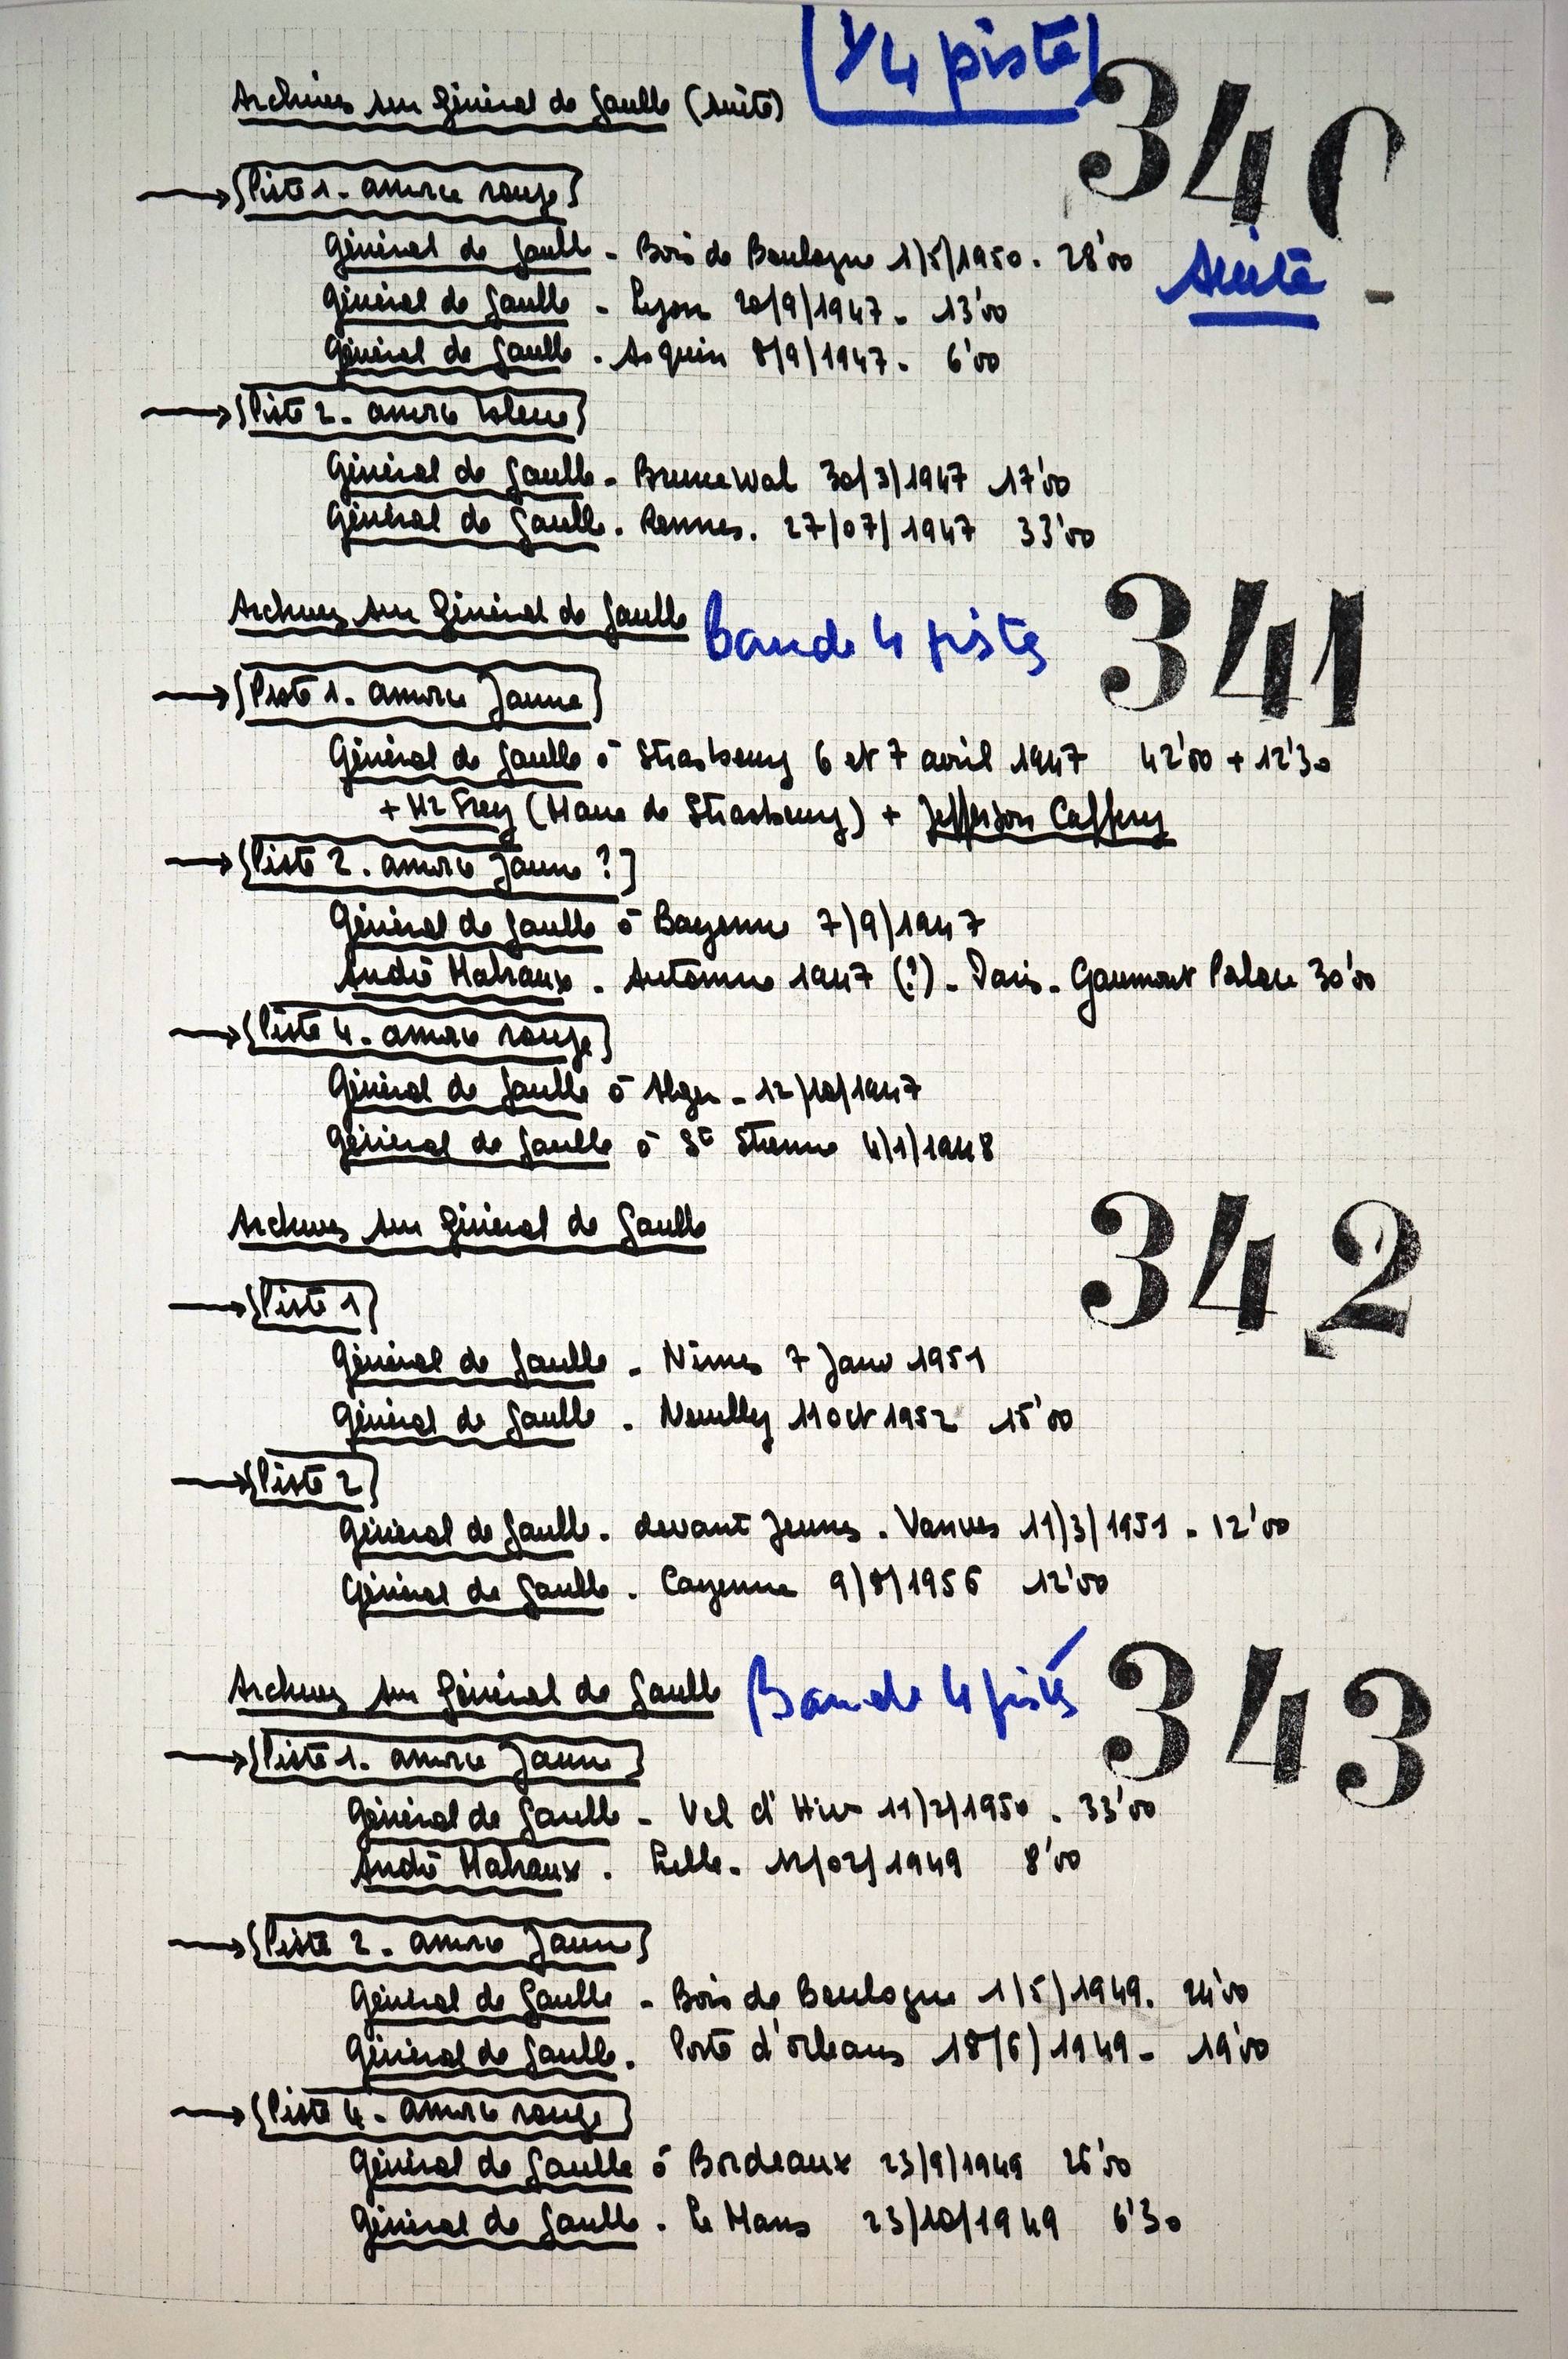 [1/4 piste]
Archives sur Général de Gaulle (suite)
340
suite
→ [Piste 1. amorce rouge]
Général de Gaulle - Bois de Boulogne 1/5/1950. 28'00
Général de Gaulle - Lyon 20/9/1947. 13'00
Général de Gaulle. Asquin 8/9/1947. 6'00
→ [Piste 2. amorce bleue]
Général de Gaulle. Bruneval 30/3/1947 17'00
Général de Gaulle. Rennes. 27/07/1947 33'00
Archives sur Général de Gaulle Bande 4 pistes 341
→ [Piste 1. amorce Jaune]
Général de Gaulle à Strasbourg 6 et 7 avril 1947 42'00 + 12'30
+ Mr Frey (Maire de Strasbourg) + Jefferson Caffery
→ [Piste 2. amorce Jaune ?]
Général de Gaulle à Bayonne 7/9/1947
André Malraux. Automne 1947 (?) - Paris - Gaumont Palace 30'00
→ [Piste 4. amorce rouge]
Général de Gaulle à Alger - 12/10/1947
Général de Gaulle à St Etienne 4/1/1948
Archives sur Général de Gaulle 342
→ [Piste 1]
Général de Gaulle - Nîmes 7 Janv 1951
Général de Gaulle. Neuilly 11 oct 1952 15'00
→ [Piste 2]
Général de Gaulle. devant Jeunes. Vanves 11/3/1951 - 12'00
Général de Gaulle. Cayenne 9/8/1956 12'00
Archives sur Général de Gaulle Bande 4 pistes 343
→ [Piste 1. amorce Jaune]
Général de Gaulle - Vel d'Hiv 11/2/1950. 33'00
André Malraux. Lille. 12/02/1949 8'00
→ [Piste 2. amorce Jaune]
Général de Gaulle - Bois de Boulogne 1/5/1949. 24'00
Général de Gaulle. Porte d'orléans 18/6/1949 - 19'00
→ [Piste 4. amorce rouge]
Général de Gaulle à Bordeaux 23/9/1949 26'00
Général de Gaulle. Le Mans 23/10/1949 6'30